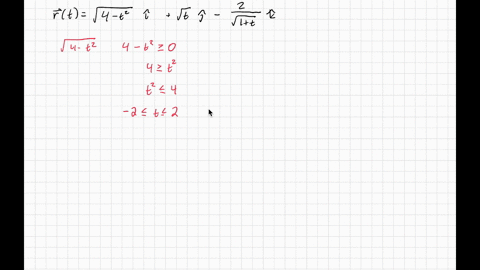 r⃗(t) = √(4-t²) î + √t ĵ - 2/√(1+t) k̂
√(4-t²) 4-t² ≥ 0
4 ≥ t²
t² ≤ 4
-2 ≤ t ≤ 2